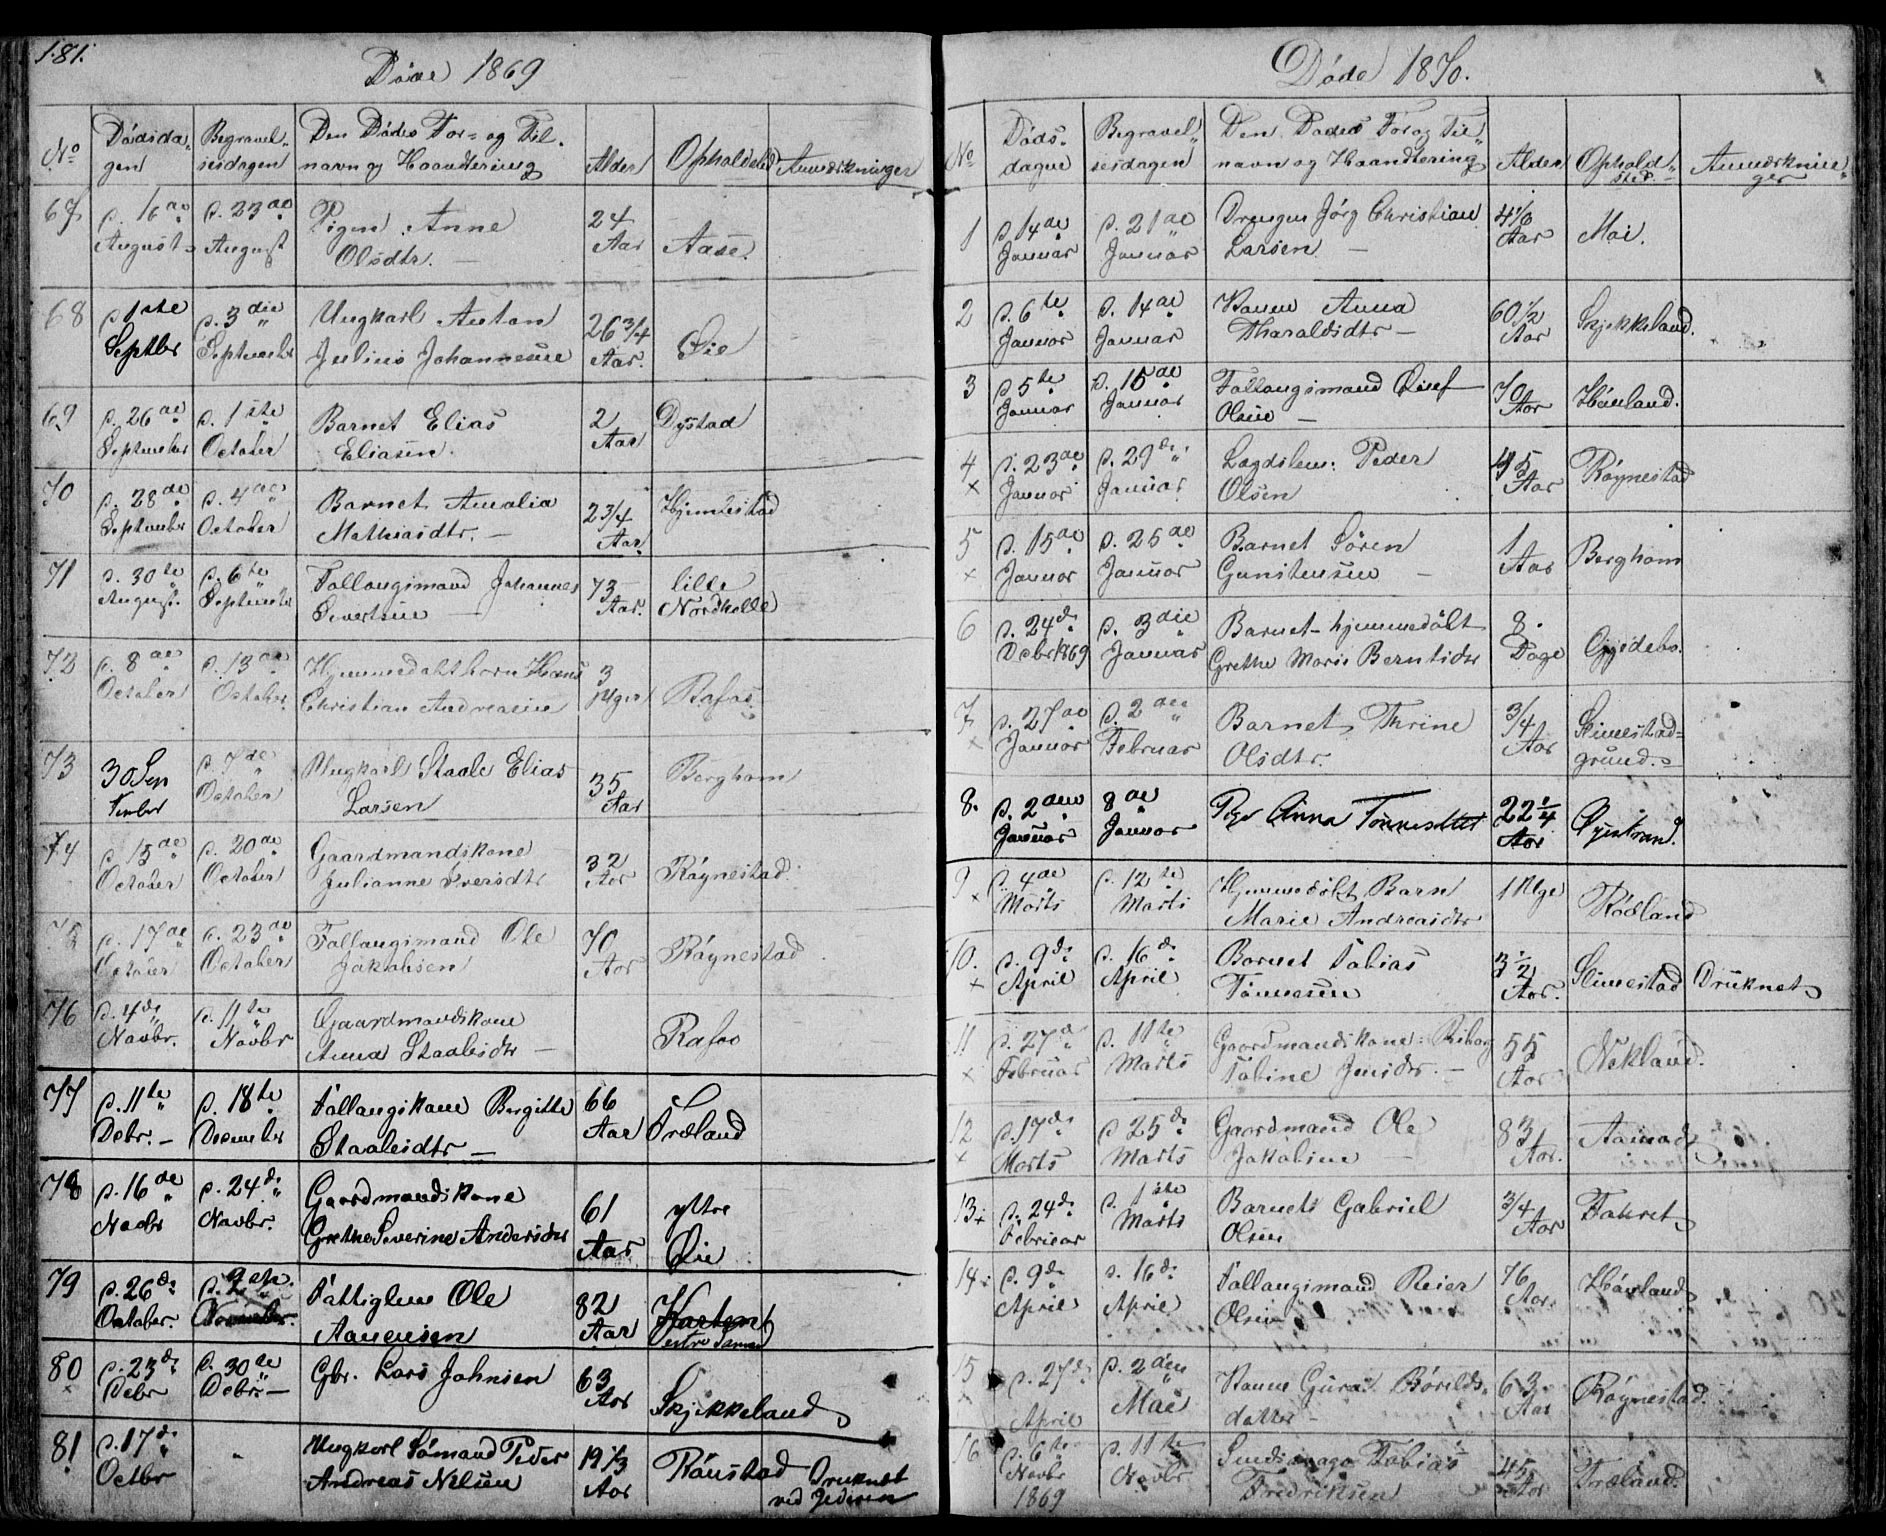 181.
Døde 1869
No
Dødsda-
gen
Begravel-
sesdagen
Den Dødes For- og Til-
navn og Haandtering
Alder
Opholdsted
Anmærkninger
67 d. 16de August d. 23de August Pigen Anne Olsdtr. 24 Aar Aase.
68 d. 1ste Septbr d. 3die September Ungkarl Anton Julius Johannesen 26 3/4 Aar. Øie
69 d. 26de September d. 1ste October Barnet Elias Eliasen 2 Aar Dystad
70 d. 28de September d. 4de October Barnet Amalia Mathiasdtr. 2 3/4 Aar Hjemlestad
71 d. 30te August. d. 6te September Fallangsmand Johannes Sivertsen 73 Aar. lille Nordhelle
72 d. 8de October d. 13de October Hjemmedøbt barn Hans Christian Andreasen 3 Uger Rafos
73 30 September d. 7de October Ungkarl Staale Elias Larsen 35 Aar Berghom
74 d. 15de October d. 20de October Gaardmandskone Julianne Iversdtr 32 Aar Røynestad.
75 d. 17de October d. 23de October Fallangsmand Ole Jakobsen 70 Aar Røynestad
76 d. 4de Novbr. d. 11te Novbr Gaardmandskone Anna Staalesdtr Rafos
77 d. 11te Debr. d. 18te December Fallangskone Bergitte Staalesdtr 66 Aar Træland
78 d. 16de Novbr d. 24de Novbr. Gaardmandskone Grethe Severine Andersdtr 61 Aar yttre Øie
79 d. 26de October. November. Fattiglem Ole Aanensen 82 Aar
80 d. 23de Debr d. 30te Debr Gbr. Lars Johnsen 63 Aar Skjekkeland
81 d. 17de Octbr Ungkarl Sømand Peder Andreas Nelsen 19 1/3 Aar Rønstad Druknet ved Jederen
Døde 1870.
No
Døds-
dagen
Begravel-
sesdagen
Den Dødes For og Til-
navn og Haandtering
Alder
Ophold-
sted.
Anmærknin-
ger
1 d. 14de Januar d. 21de Januar Drengen Jørg Christian Larsen Aar Moi.
2 d. 6te Januar d. 14de Januar Konen Anna Tharaldsdtr 60 1/2 Aar Skjekkeland.
3 d. 5te Januar d. 15de Januar Fallangsmand Elief Olsen 70 Aar Høiland.
4 d. 23de Januar d. 29de Januar Lægdslem: Peder Olsen 45 Aar Røynestad
5 d. 15de Januar d. 25de Januar Barnet Søren Gunstensen 1 Aar Berghom
6 d. 24de Debr 1869 d. 3die Januar Barnet hjemmedøbt Grethe Marie Berntsdtr 8 Dage Gjedebo.
7 d. 27de Januar d. 2den Februar Barnet Thrine Olsdtr. 3/4 Aar Slimestad-grund.
8. d. 2den Januar 8de Januar Pige Anna Tønnesdtr 22 1/4 Aar Øyestrand.
9 d. 4de Marts d. 12te Marts Hjemmedøbt Barn Marie Andreasdtr 1 Uge Rødland
10. d. 9de April d. 16de April Barnet Tobias Tønnesen 3 1/2 Aar. Slimestad Druknet
11 d. 27de Februar d. 11te Marts Gaardmandskone Riborg Tobine Jensdtr. 55 Aar Nekland.
12 d. 17de Marts d. 25de Marts Gaardmand Ole Jakobsen 83 Aar. Aamod
13 d. 24de Februar d. 1ste Marts Barnet Gabriel Olsen 3/4 Aar Faknet
14 d. 9de April d. 16de April Fallangsmand Reier Olsen 76 Aar. Høiland
15 d. 27de April d. 2den Mai Konen Guro Børilds-datter 63 Aar Røynestad.
16 d. 6te Novbr 1869 d. 11te Novbr Tobias Fredriksen 45 Aar Træland.